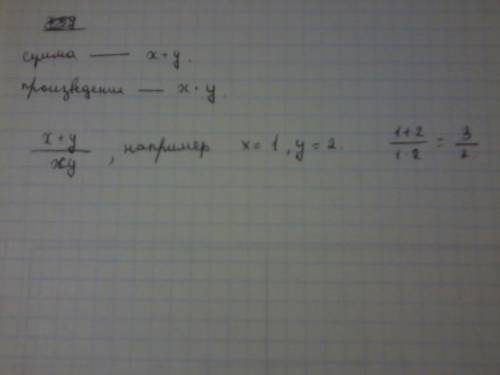 сумма — x+y.
произведение — x·y.
x+y / xy, например x=1, y=2. 1+2 / 1·2 = 3 / 2